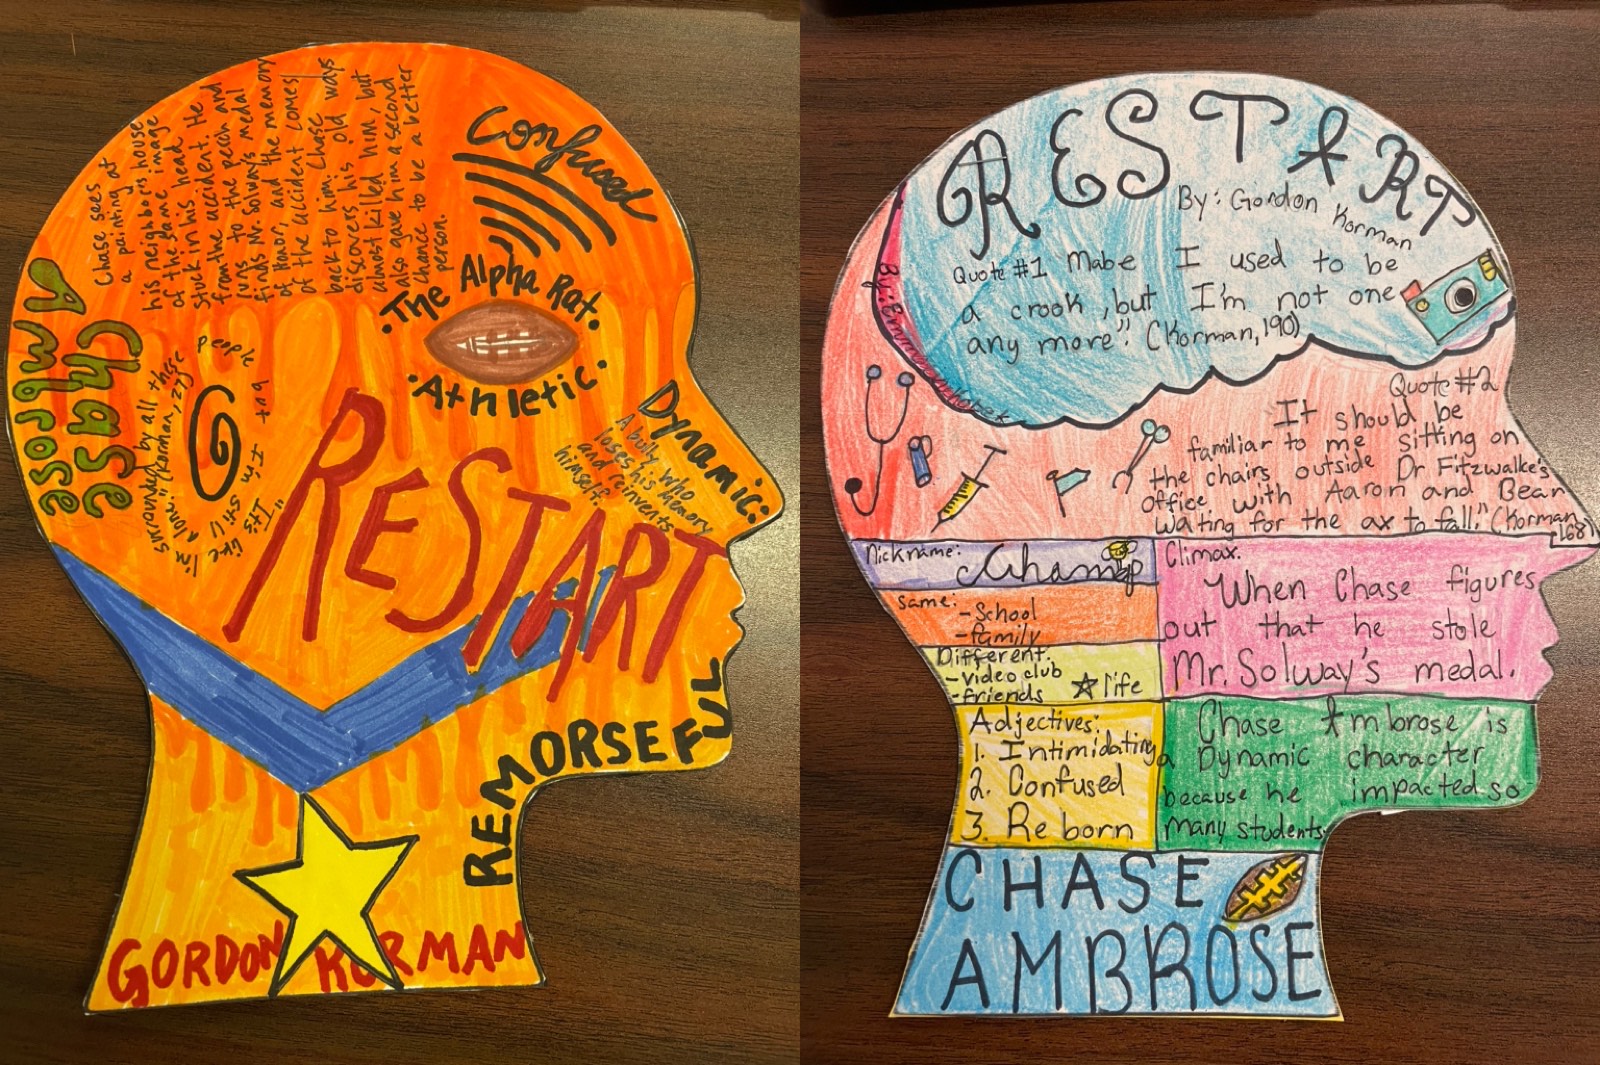 Chase sees
a painting at
his neighbor's house
of the same image
stuck in his head
from the accident. He
runs to the porch and
finds Mr. Solway's medal
of Honor, and the memory
of the accident comes
back to him. Chase
discovers his old ways
almost killed him, but
also gave him a second
chance to be a better
person.
Confused
Chase
Ambrose
•The Alpha Rat•
•Athletic•
"It's like I'm surrounded by all these people but I'm still alone." (Korman, 27)
Dynamic:
A bully who
loses his memory
and reinvents
himself.
RESTART
REMORSEFUL
GORDON KORMAN
RESTART
By: Gordon Korman
Quote #1 Mabe I used to be
a crook, but I'm not one
any more". (Korman, 190)
Quote #2
It should be
familiar to me sitting on
the chairs outside Dr Fitzwalke's
office with Aaron and Bear
waiting for the ax to fall." (Korman
168)
Nickname:
Champ
Same:
-School
-family
Different:
-video club
-friends
life
Adjectives:
1. Intimidating
2. Confused
3. Re born
Climax:
When Chase figures
out that he stole
Mr. Solway's medal.
Chase Ambrose is
a Dynamic character
because he impacted so
many students.
CHASE
AMBROSE